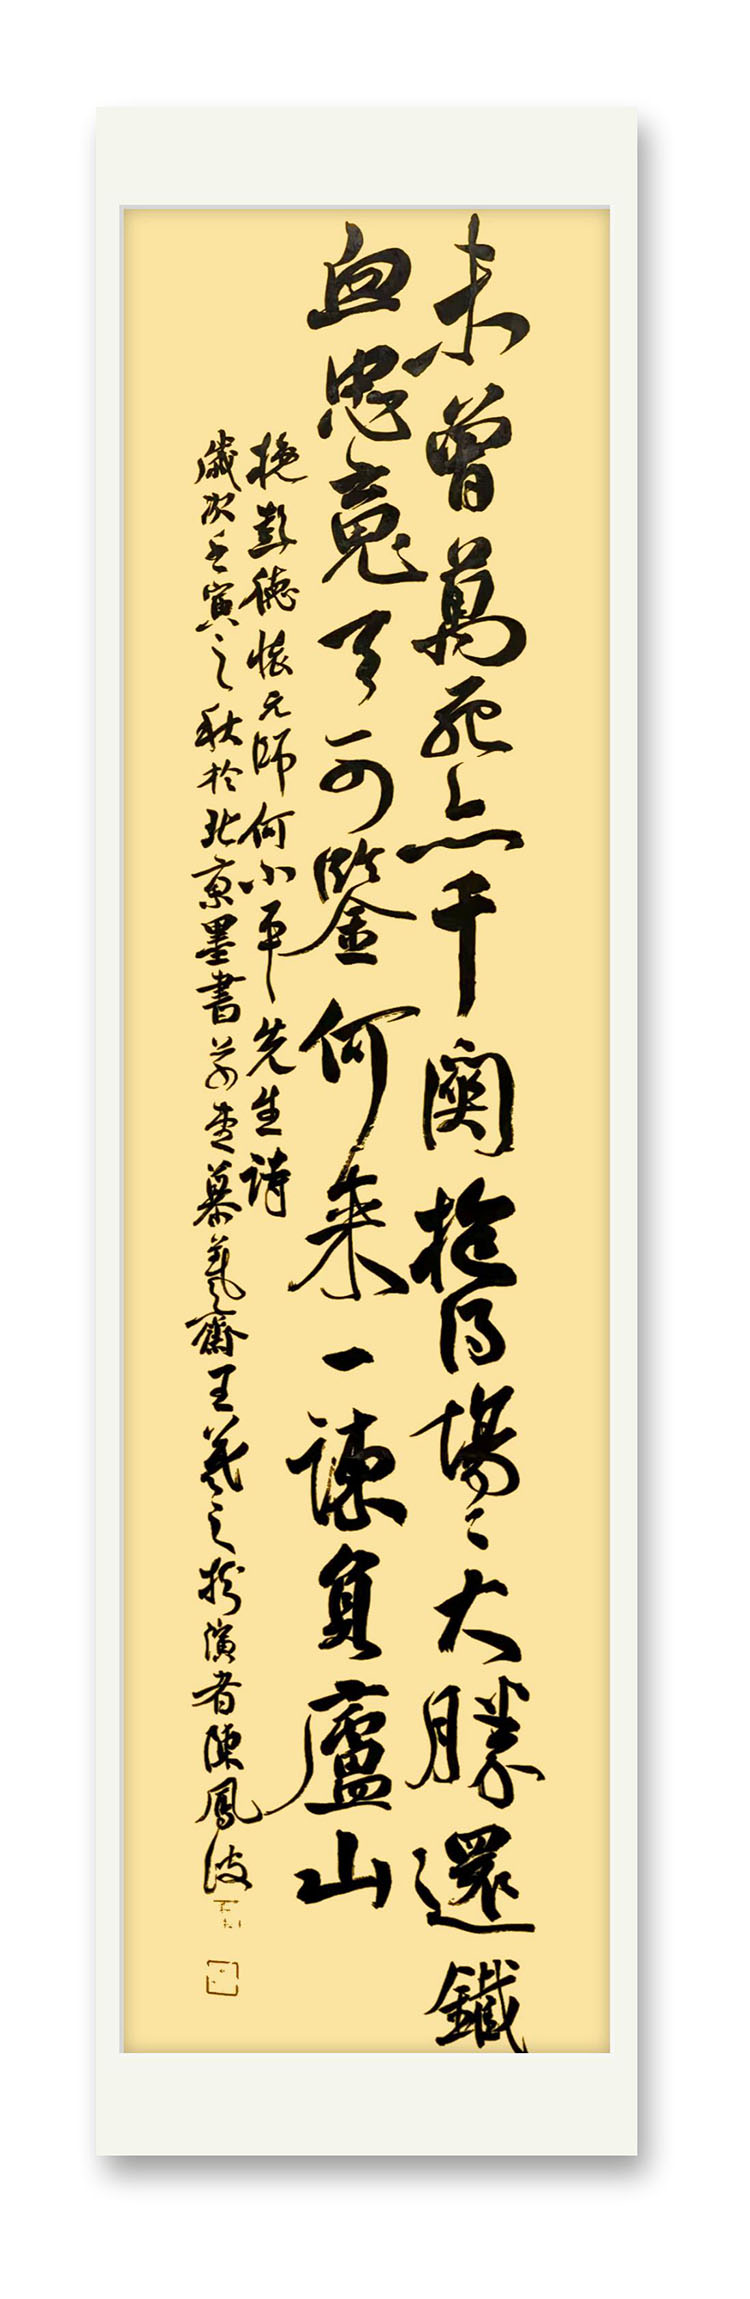 未曾萬死亦千関搶得場々大勝還鐵
血忠魂天可鑒何來一諫負廬山
挽彭德懷元帥何小平先生詩
歲次壬寅之秋於北京墨書慕羲齋王羲之扮演者陳鳳波